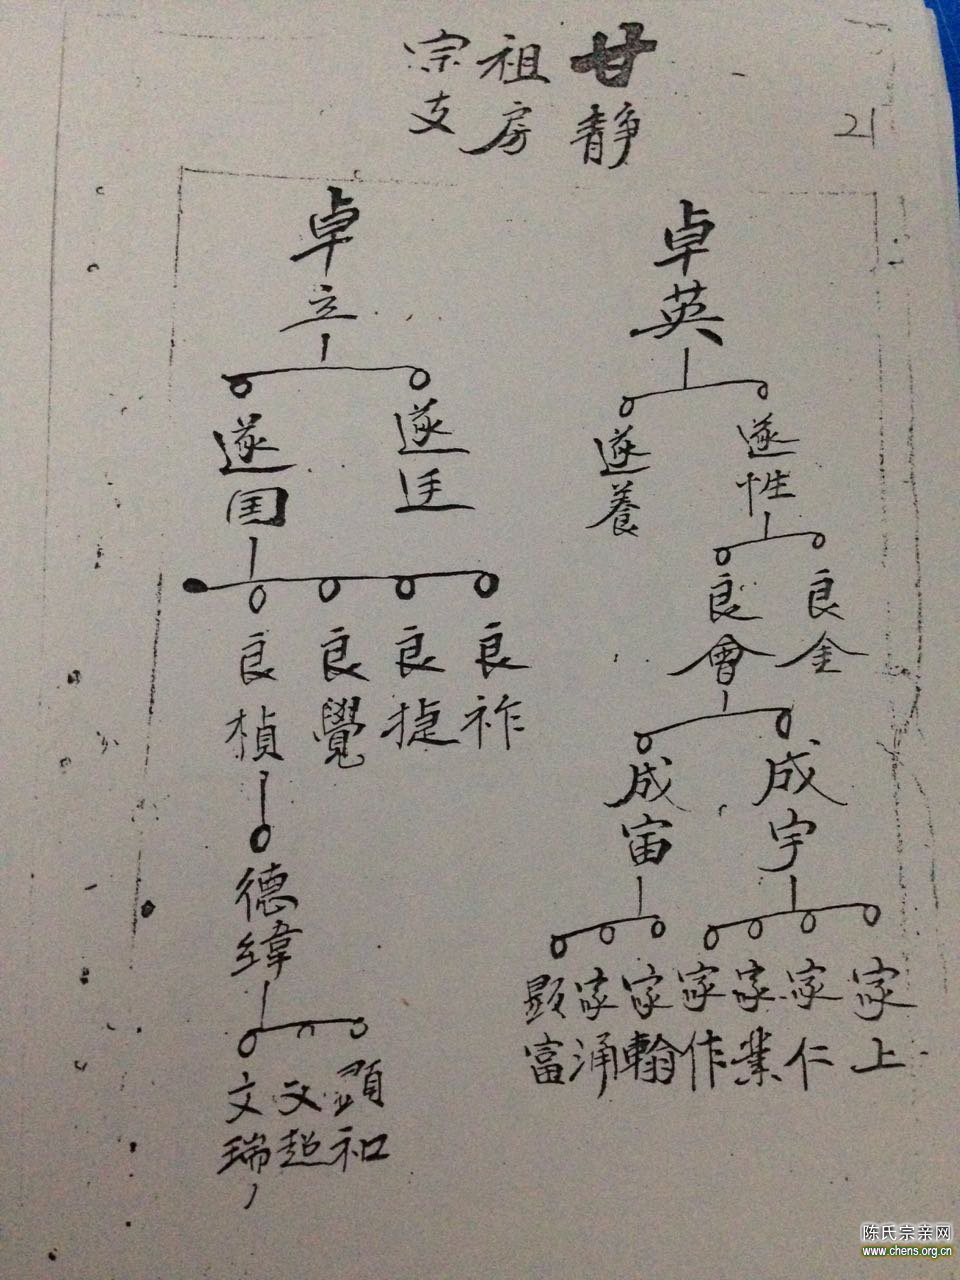 甘祖宗
静房支
21
卓英
卓立
遂性
遂養
遂廷
遂国
良金
良會
良祚
良捷
良覺
良楨
成宇
成宙
德緯
家上
家仁
家業
家作
家翰
家涌
顕富
顕和
文超
文瑞
陈氏宗亲网
www.chens.org.cn